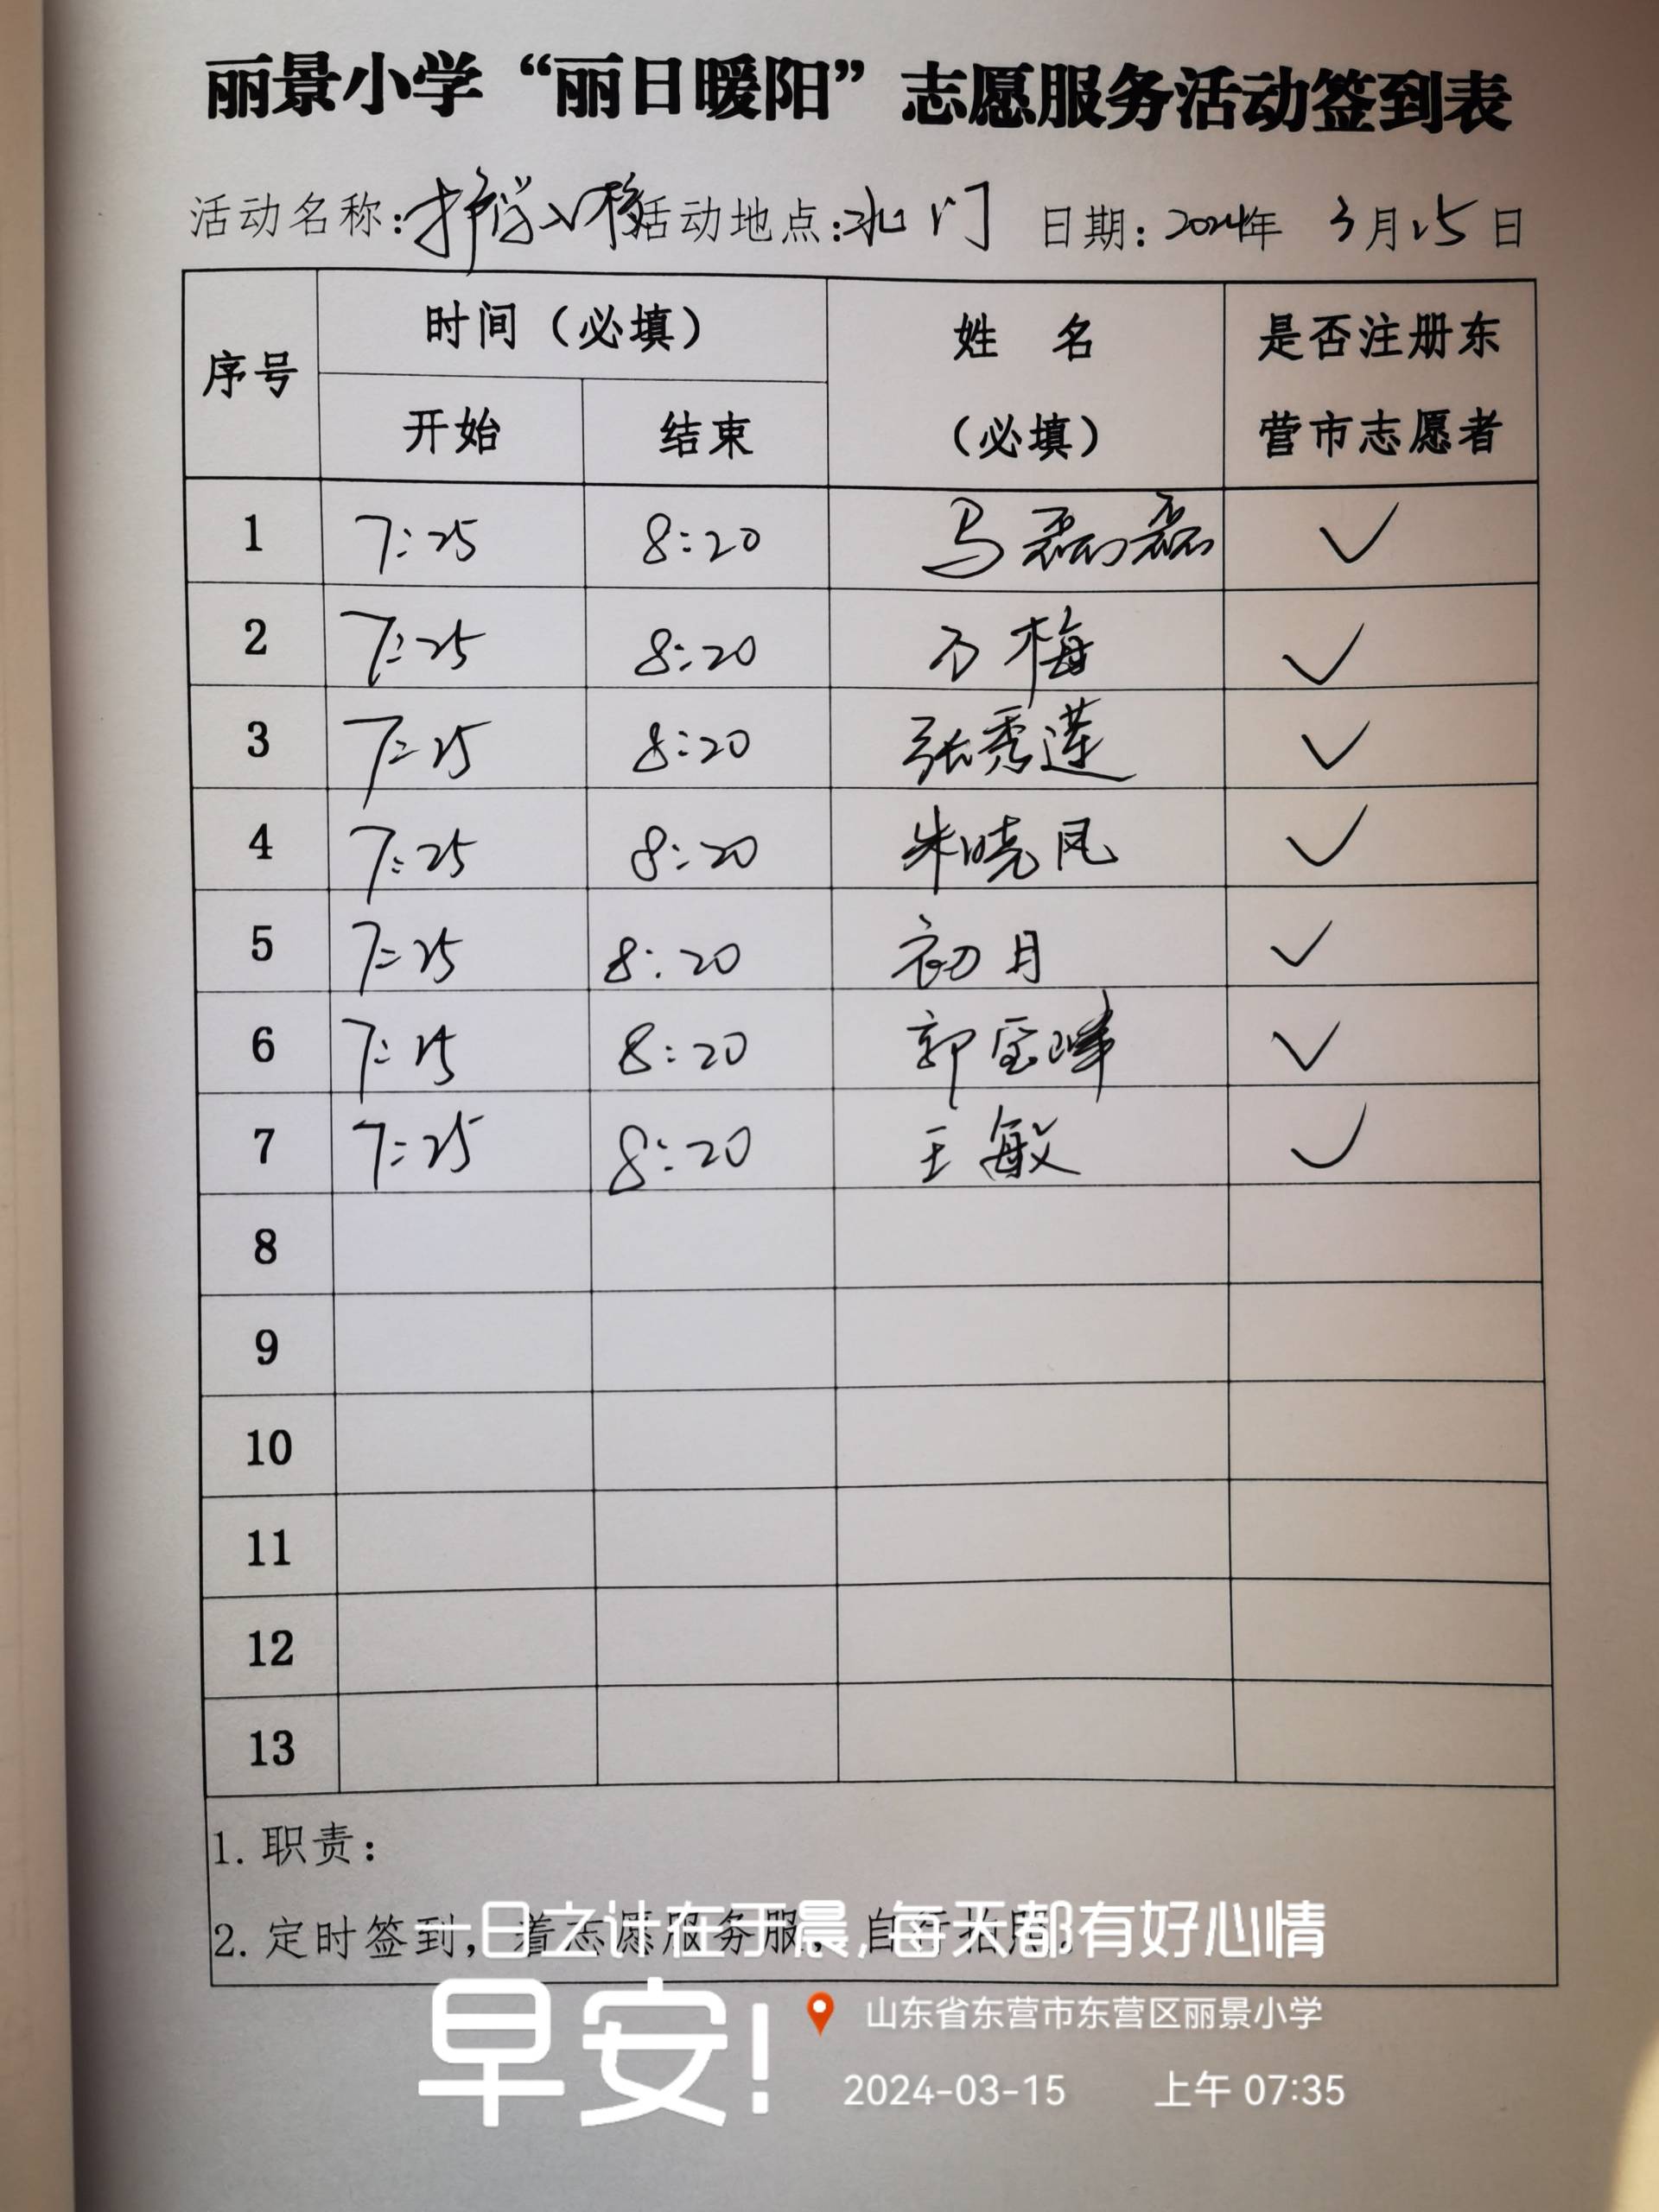 丽景小学“丽日暖阳”志愿服务活动签到表
活动名称:护学入校 活动地点:北门 日期:2024年 3月15日
序号 时间（必填） 姓 名 是否注册东
开始 结束 （必填） 营市志愿者
1 7:25 8:20 马磊磊 ✓
2 7:25 8:20 万梅 ✓
3 7:25 8:20 张秀莲 ✓
4 7:25 8:20 朱晓凤 ✓
5 7:25 8:20 初月 ✓
6 7:25 8:20 郭宝峰 ✓
7 7:25 8:20 王敏 ✓
8
9
10
11
12
13
1.职责：
2.定时签到，着志愿服务服，自行拍照。
一日之计在于晨,每天都有好心情
早安!
山东省东营市东营区丽景小学
2024-03-15 上午 07:35